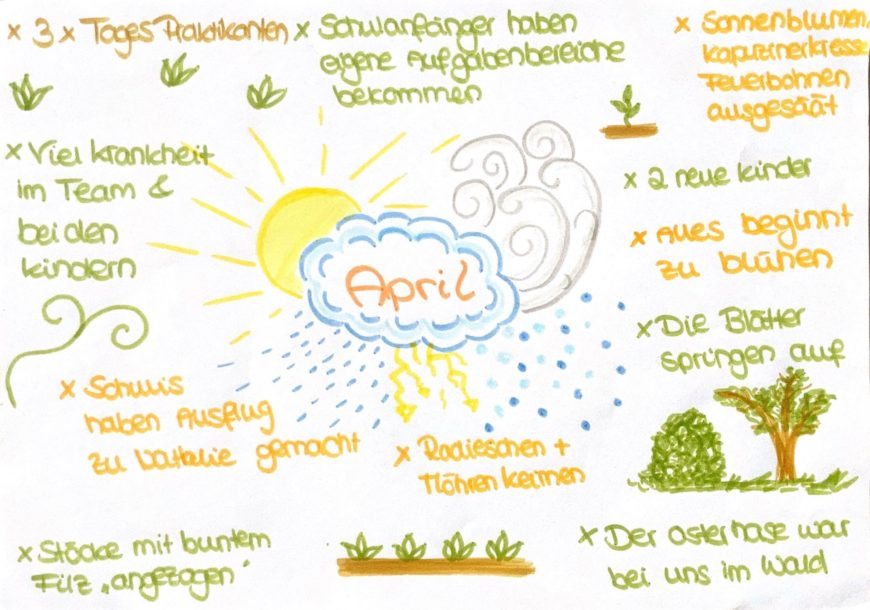 x 3 x Tages Praktikanten
x Schulanfänger haben
eigene Aufgabenbereiche
bekommen
x Sonnenblumen,
Kapuzinerkresse
Feuerbohnen
ausgesäät
x Viel Krankheit
im Team &
bei den
Kindern
x 2 neue Kinder
x Alles beginnt
zu blühen
April
x Die Blätter
springen auf
x Schulis
haben Ausflug
zu Nathalie gemacht
x Radieschen +
Möhren keimen
x Stöcke mit buntem
Filz „angezogen"
x Der Osterhase war
bei uns im Wald